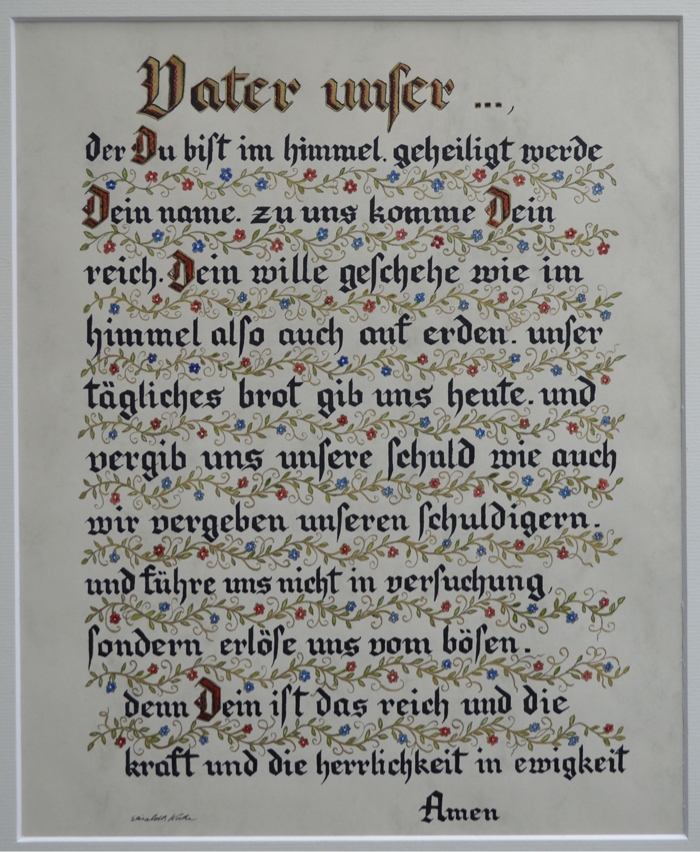 Vater unſer ...,
der Du biſt im himmel. geheiligt werde
Dein name. zu uns komme Dein
reich. Dein wille geſchehe wie im
himmel alſo auch auf erden. unſer
tägliches brot gib uns heute. und
vergib uns unſere ſchuld wie auch
wir vergeben unſeren ſchuldigern.
und führe uns nicht in verſuchung,
ſondern erlöſe uns vom böſen.
denn Dein iſt das reich und die
kraft und die herrlichkeit in ewigkeit
Amen